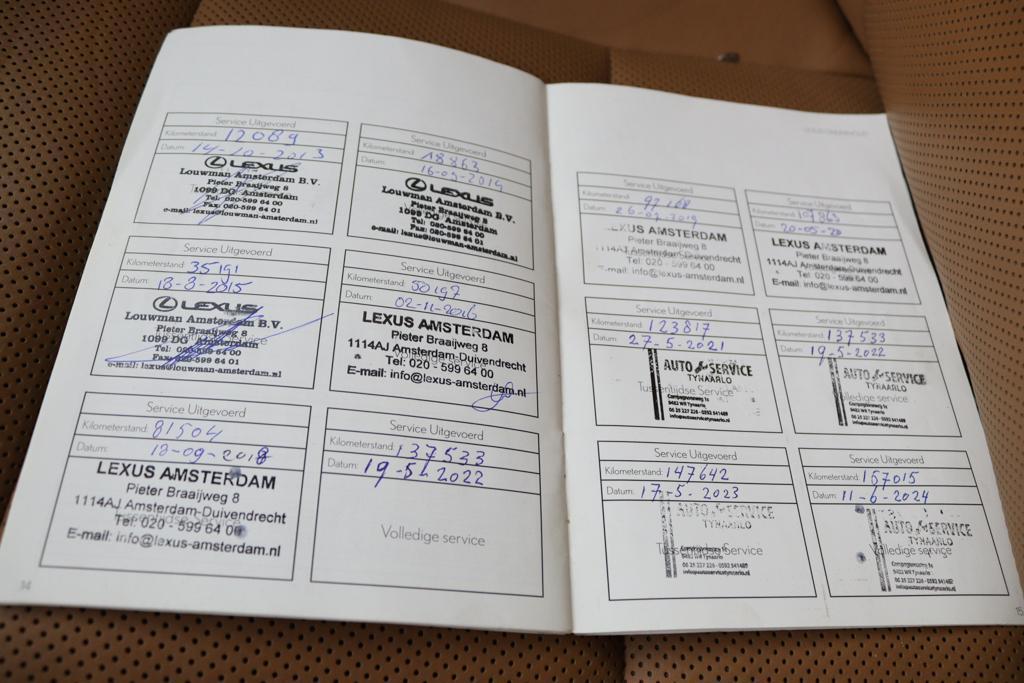 Service Uitgevoerd
Kilometerstand: 12089
Datum: 14-10-2013
LEXUS
Louwman Amsterdam B.V.
Pieter Braaijweg 8
1099 DG Amsterdam
Tel: 020-599 64 00
Fax: 020-599 64 01
e-mail: lexus@louwman-amsterdam.nl
Service Uitgevoerd
Kilometerstand: 18863
Datum: 16-09-2014
LEXUS
Louwman Amsterdam B.V.
Pieter Braaijweg 8
1099 DG Amsterdam
Tel: 020-599 64 00
Fax: 020-599 64 01
e-mail: lexus@louwman-amsterdam.nl
Service Uitgevoerd
Kilometerstand: 35191
Datum: 18-8-2015
LEXUS
Louwman Amsterdam B.V.
Pieter Braaijweg 8
1099 DG Amsterdam
Tel: 020-599 64 00
Fax: 020-599 64 01
e-mail: lexus@louwman-amsterdam.nl
Service Uitgevoerd
Kilometerstand: 50197
Datum: 02-11-2016
LEXUS AMSTERDAM
Pieter Braaijweg 8
1114AJ Amsterdam-Duivendrecht
Tel: 020 - 599 64 00
E-mail: info@lexus-amsterdam.nl
Service Uitgevoerd
Kilometerstand: 81504
Datum: 18-09-2018
LEXUS AMSTERDAM
Pieter Braaijweg 8
1114AJ Amsterdam-Duivendrecht
Tel: 020 - 599 64 00
E-mail: info@lexus-amsterdam.nl
Service Uitgevoerd
Kilometerstand: 137533
Datum: 19-5-2022
Volledige service
14
Service Uitgevoerd
Kilometerstand:
Datum: 26-07-2019
LEXUS AMSTERDAM
Pieter Braaijweg 8
1114AJ Amsterdam-Duivendrecht
Tel: 020 - 599 64 00
E-mail: info@lexus-amsterdam.nl
Service Uitgevoerd
Kilometerstand: 107863
Datum: 20-05-20
LEXUS AMSTERDAM
Pieter Braaijweg 8
1114AJ Amsterdam-Duivendrecht
Tel: 020 - 599 64 00
E-mail: info@lexus-amsterdam.nl
Service Uitgevoerd
Kilometerstand: 123817
Datum: 27-5-2021
AUTO SERVICE
TYNAARLO
Tussentijdse Service
9482 WR Tynaarlo
06 25 227 226 - 0592 541489
Service Uitgevoerd
Kilometerstand: 137533
Datum: 19-5-2022
AUTO SERVICE
TYNAARLO
Volledige service
9482 WR Tynaarlo
06 25 227 226 - 0592 541489
Service Uitgevoerd
Kilometerstand: 147642
Datum: 17-5-2023
AUTO SERVICE
TYNAARLO
Tussentijdse Service
9482 WR Tynaarlo
06 25 227 226 - 0592 541489
Service Uitgevoerd
Kilometerstand: 157015
Datum: 11-6-2024
AUTO SERVICE
TYNAARLO
Volledige service
9482 WR Tynaarlo
06 25 227 226 - 0592 541489
15